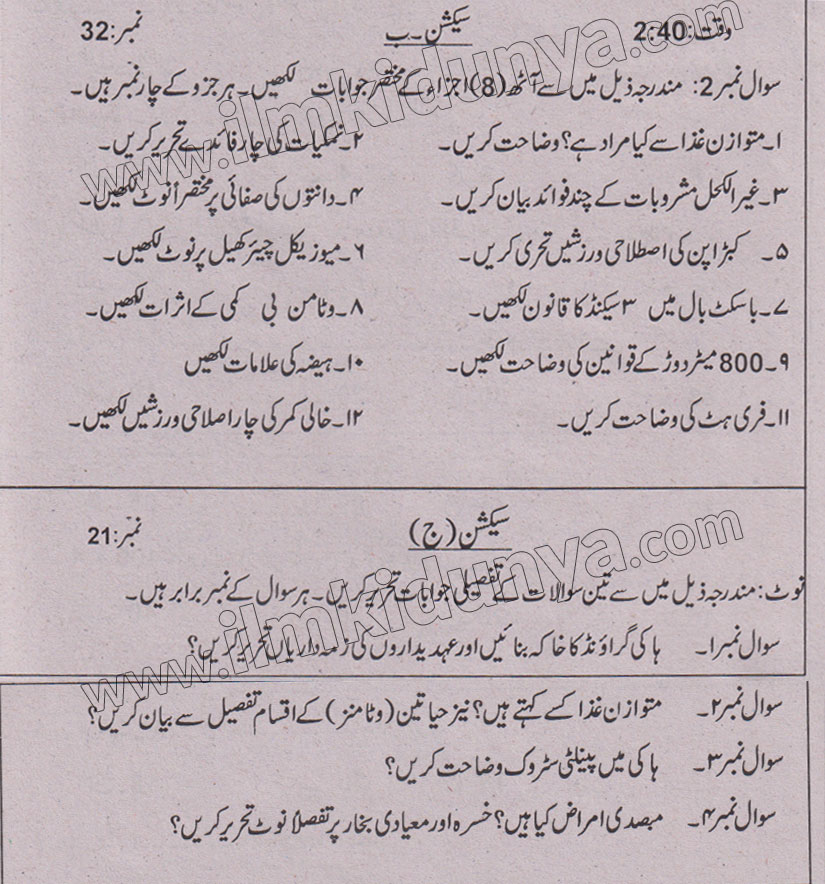 وقت:2:40 سیکشن۔ب نمبر:32
سوال نمبر2: مندرجہ ذیل میں سے آٹھ(8)اجزاء کے مختصر جوابات لکھیں۔ہر جزو کے چار نمبر ہیں۔
۱۔متوازن غذا سے کیا مراد ہے؟وضاحت کریں۔ ۲۔نمکیات کی چار فائدے تحریر کریں۔
۳۔غیر الکحل مشروبات کے چند فوائد بیان کریں۔ ۴۔دانتوں کی صفائی پر مختصراً نوٹ لکھیں۔
۵۔ کبڑا پن کی اصطلاحی ورزشیں تحری کریں۔ ۶۔میوزیکل چیئر کھیل پر نوٹ لکھیں۔
۷۔باسکٹ بال میں ۳سیکنڈ کا قانون لکھیں۔ ۸۔وٹامن بی کمی کے اثرات لکھیں۔
۹۔800میٹر دوڑ کے قوانین کی وضاحت لکھیں۔ ۱۰۔ہیضہ کی علامات لکھیں
۱۱۔فری ہٹ کی وضاحت کریں۔ ۱۲۔خالی کمر کی چار اصلاحی ورزشیں لکھیں۔
سیکشن(ج) نمبر:21
نوٹ:مندرجہ ذیل میں سے تین سوالات کے تفصیلی جوابات تحریر کریں۔ہر سوال کے نمبر برابر ہیں۔
سوال نمبر۱۔ ہاکی گراؤنڈ کا خاکہ بنائیں اور عہدیداروں کی زمہ داریاں تحریر کریں؟
سوال نمبر۲۔ متوازن غذا کسے کہتے ہیں؟نیز حیاتین(وٹامنز)کے اقسام تفصیل سے بیان کریں؟
سوال نمبر۳۔ ہاکی میں پینلٹی سٹروک وضاحت کریں؟
سوال نمبر۴۔ مبصدی امراض کیا ہیں؟خسرہ اور معیادی بخار پر تفصلاً نوٹ تحریر کریں؟
www.ilmkidunya.com
www.ilmkidunya.com